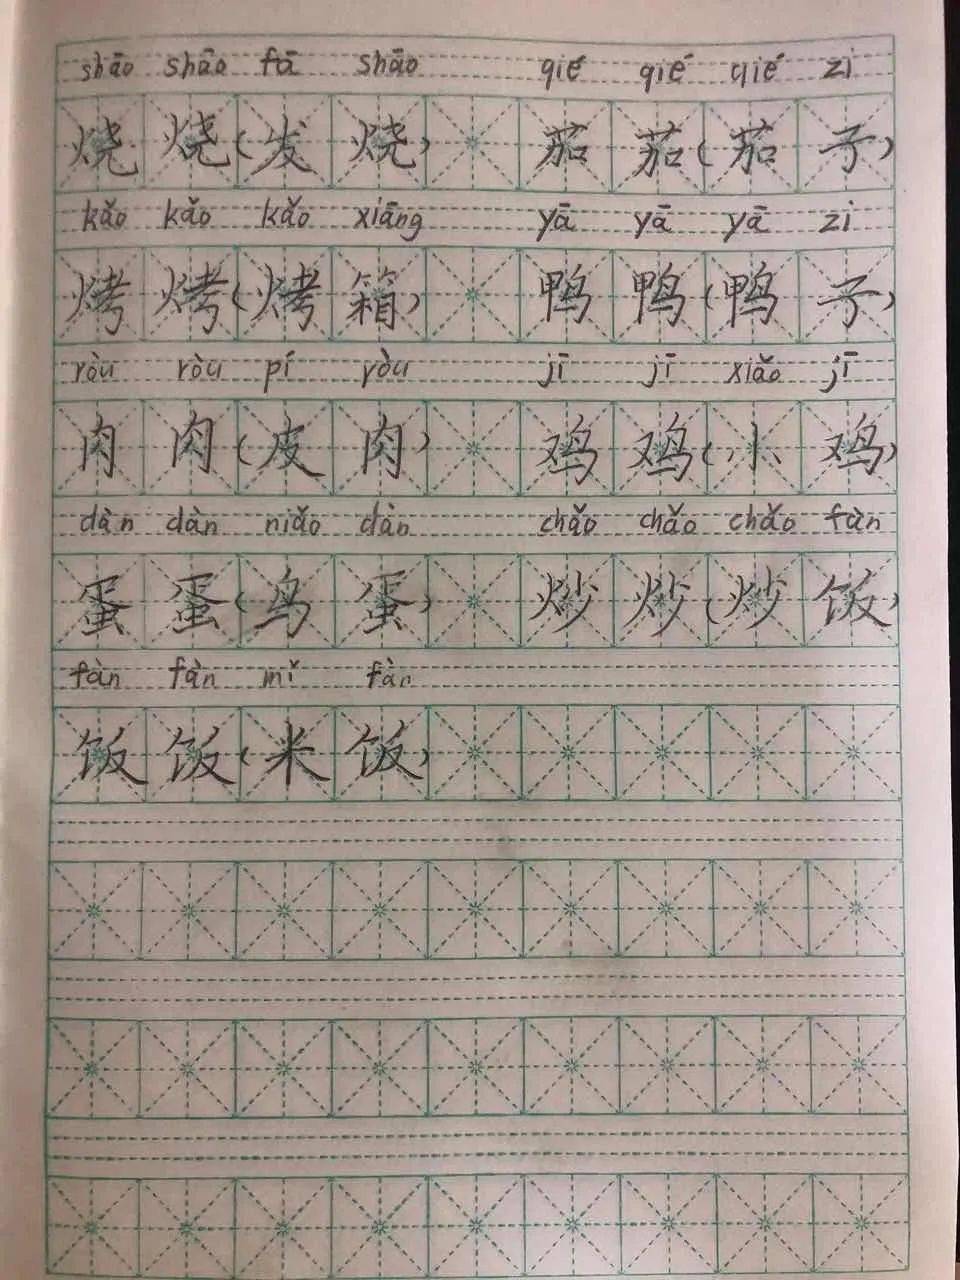 shāo shāo fā shāo qié qié qié zi
烧 烧 (发 烧) 茄 茄 (茄 子)
kǎo kǎo kǎo xiāng yā yā yā zi
烤 烤 (烤 箱) 鸭 鸭 (鸭 子)
ròu ròu pí ròu jī jī xiǎo jī
肉 肉 (皮 肉) 鸡 鸡 (小 鸡)
dàn dàn niǎo dàn chǎo chǎo chǎo fàn
蛋 蛋 (鸟 蛋) 炒 炒 (炒 饭)
fàn fàn mǐ fàn
饭 饭 (米 饭)